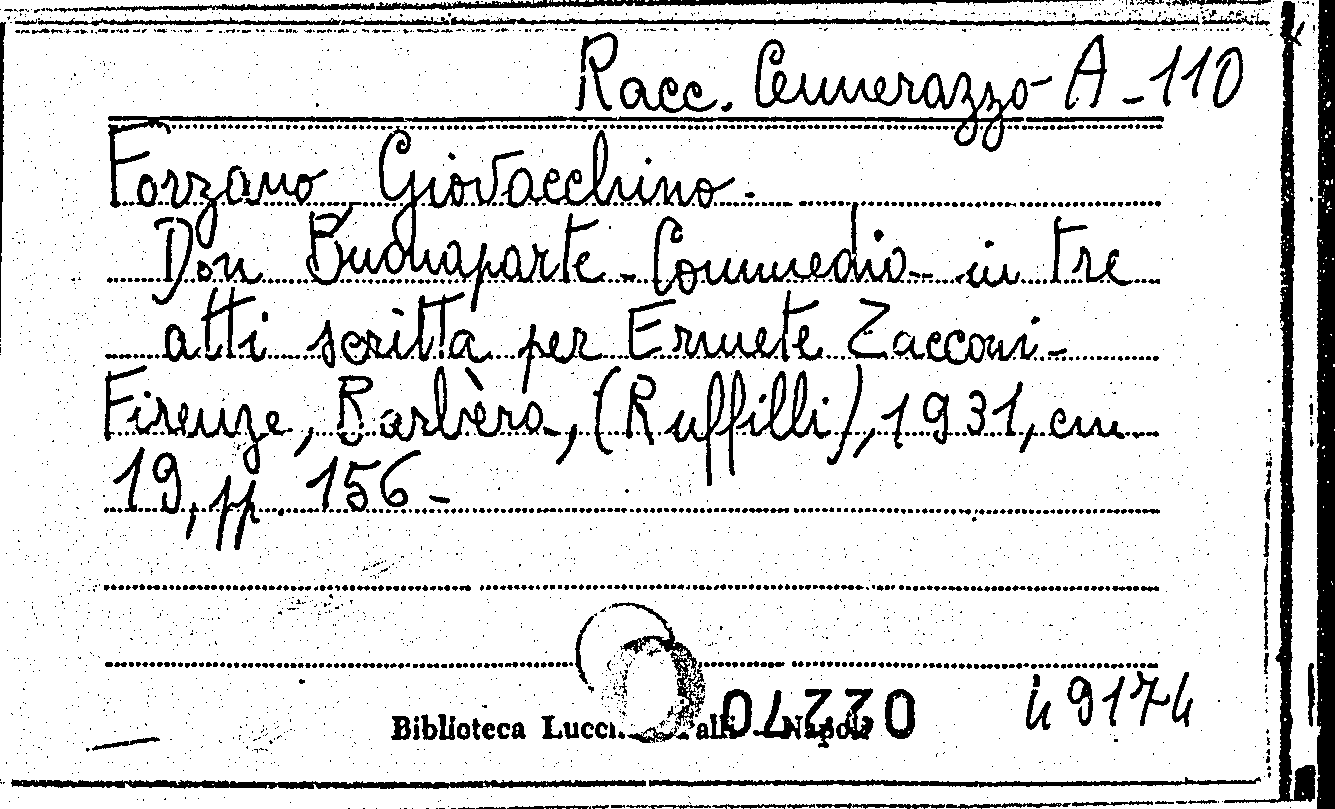 Racc. Cennerazzo - A - 110
Forzano Giovacchino.
Don Buonaparte - Commedia in tre
atti scritta per Ermete Zacconi -
Firenze, Barbèra, (Ruffilli), 1931, cm
19, pp. 156 -
49174
Biblioteca Napoli